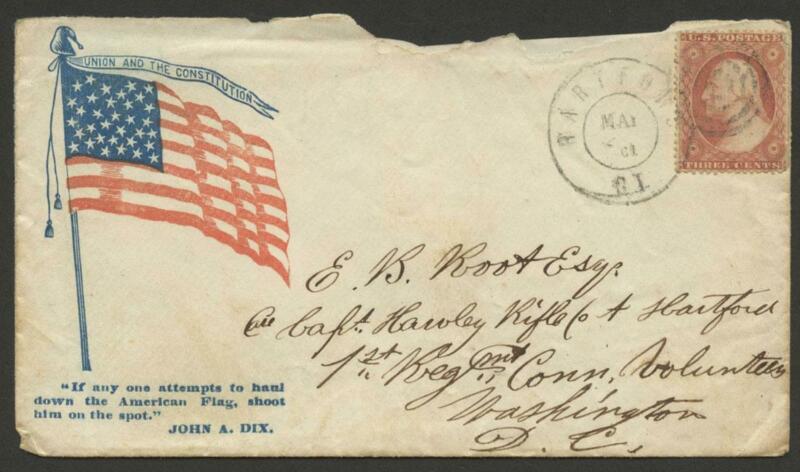 UNION AND THE CONSTITUTION
U.S. POSTAGE
THREE CENTS
HARTFORD
MAY
61
E. B. Root Esq.
Care Capt. Hawley Rifle Co A Hartford
1st Regmt Conn. Volunteers
Washington
D. C.
"If any one attempts to haul
down the American Flag, shoot
him on the spot."
JOHN A. DIX.